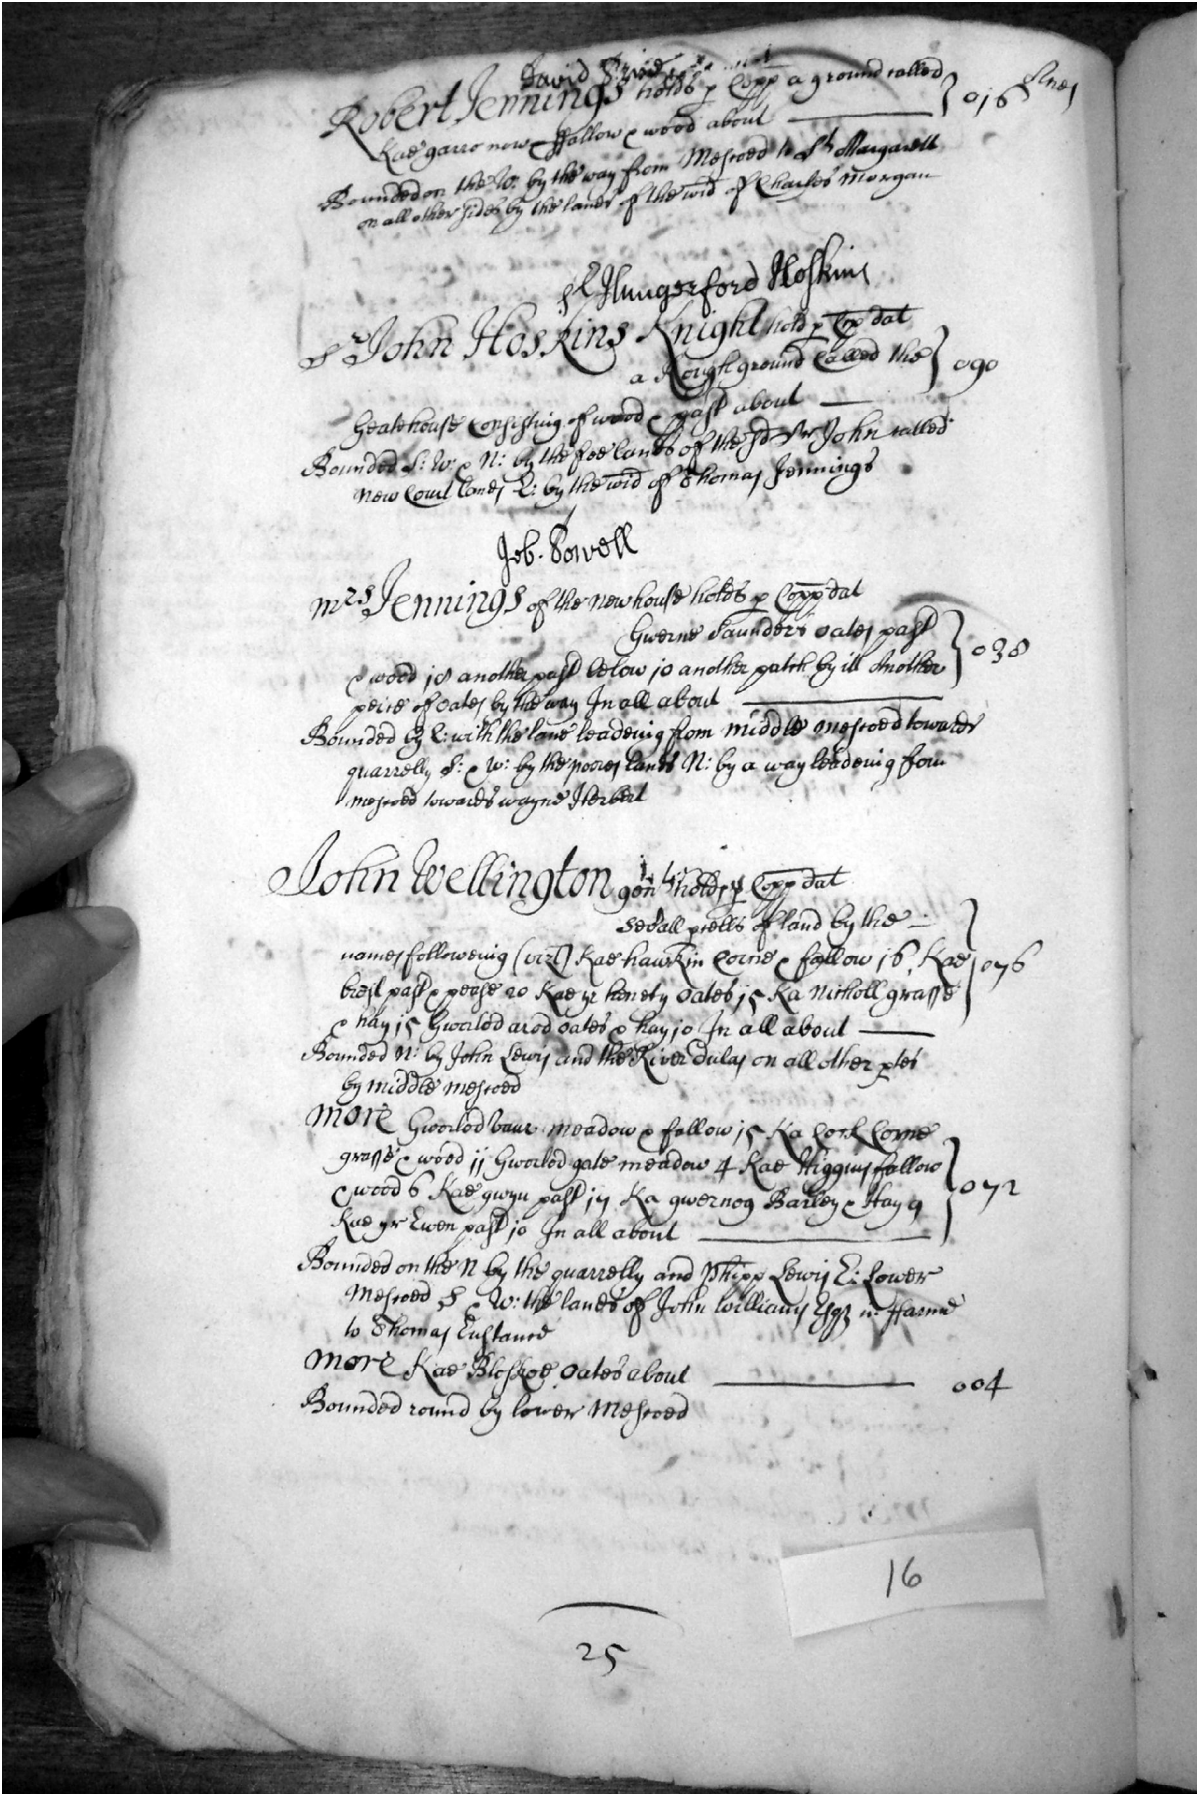 David
Robert Jennings holds p Copp a ground called } 016 Acres
Kae garro now ffallow & wood about
Bounded on the W: by the way from Mescoed to St Margarett
on all other sides by the lands of the wid of Charles Morgan
Sr Hungerford Hoskins
Sr John Hoskins Knight hold p Cop dat
a Rough ground Called the } 090
Geatehouse Consisting of wood & past about
Bounded S: W: & N: by the free lands of the sd Sr John called
New Court lands E: by the wid of Thomas Jennings
Job. Powell
mrs Jennings of the new house holds p Copp dat
Gwerne Saunders oates past } 038
& wood 18 another past below 10 another patch by itt Another
peice of oates by the way In all about
Bounded by E: with the lane leadeing from middle mescoed towards
quarrelly S: & W: by the poores lands N: by a way leadeing from
mescoed towards wayne Herbert
John Wellington gen holds p Copp dat
sevall pcells of land by the
names followeing (vizt) Kae hawkin Corne & fallow 16, Kae } 076
brest past & pease 20 Kae yr henety Oates 15 Ka Nicholl grasse
& hay 15 Gworlod arod oates & hay 10 In all about
Bounded N: by John Lewis and the River dulas on all other ptes
by middle mescoed
more Gworlod vaur meadow & fallow 15 Ka Corne
grasse & wood 11 Gworlod gate meadow 4 Kae Higgins fallow } 072
& wood 6 Kae gwyn past 17 Ka gwernog Barley & Hay 9
Kae yr Ewen past 10 In all about
Bounded on the N by the quarrelly and Phipp Lewis E: Lower
Mescoed S & W: the lands of John Williams Esqr
to Thomas Eustance
more Kae Oates about 004
Bounded round by lower Mescoed
16
25